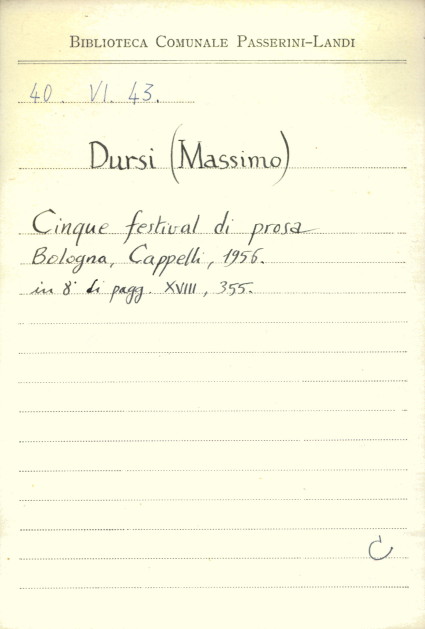 Biblioteca Comunale Passerini-Landi
40. VI. 43.
Dursi (Massimo)
Cinque festival di prosa
Bologna, Cappelli, 1956.
in 8° di pagg. XVIII, 355.
C